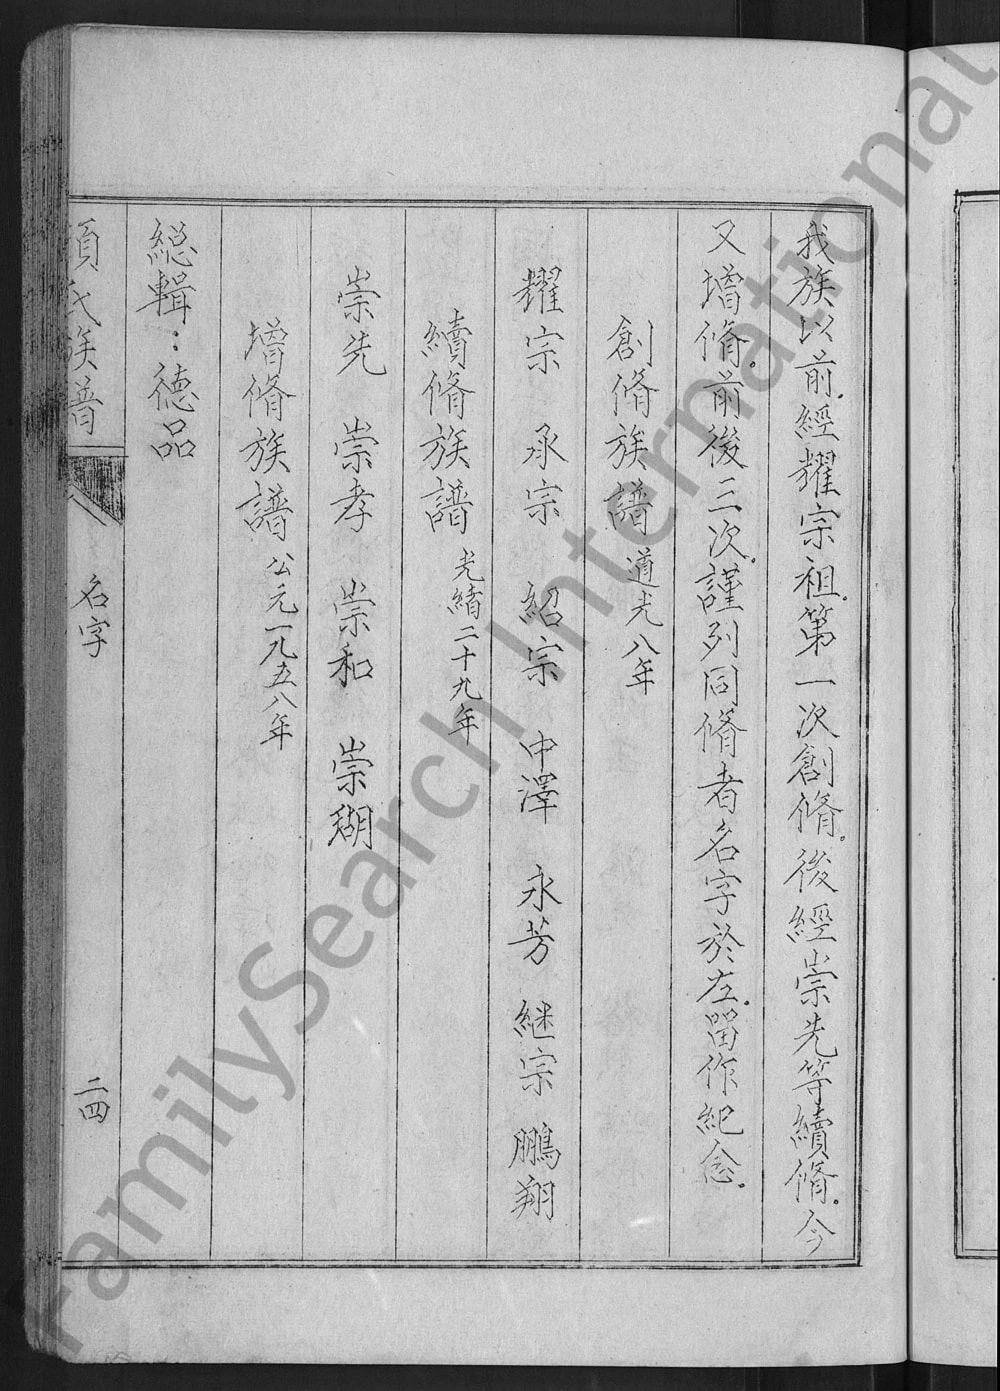 我族以前。經耀宗祖。第一次創脩。後經崇先等續脩。今
又增脩。前後三次。謹列同脩者名字於左。留作紀念。
創脩族譜 道光八年
耀宗 承宗 紹宗 中澤 永芳 継宗 鵬翔
續脩族譜 光緒二十九年
崇先 崇孝 崇和 崇瑚
增脩族譜 公元一九五八年
総輯：德品
項氏族普
名字
二四
FamilySearch International